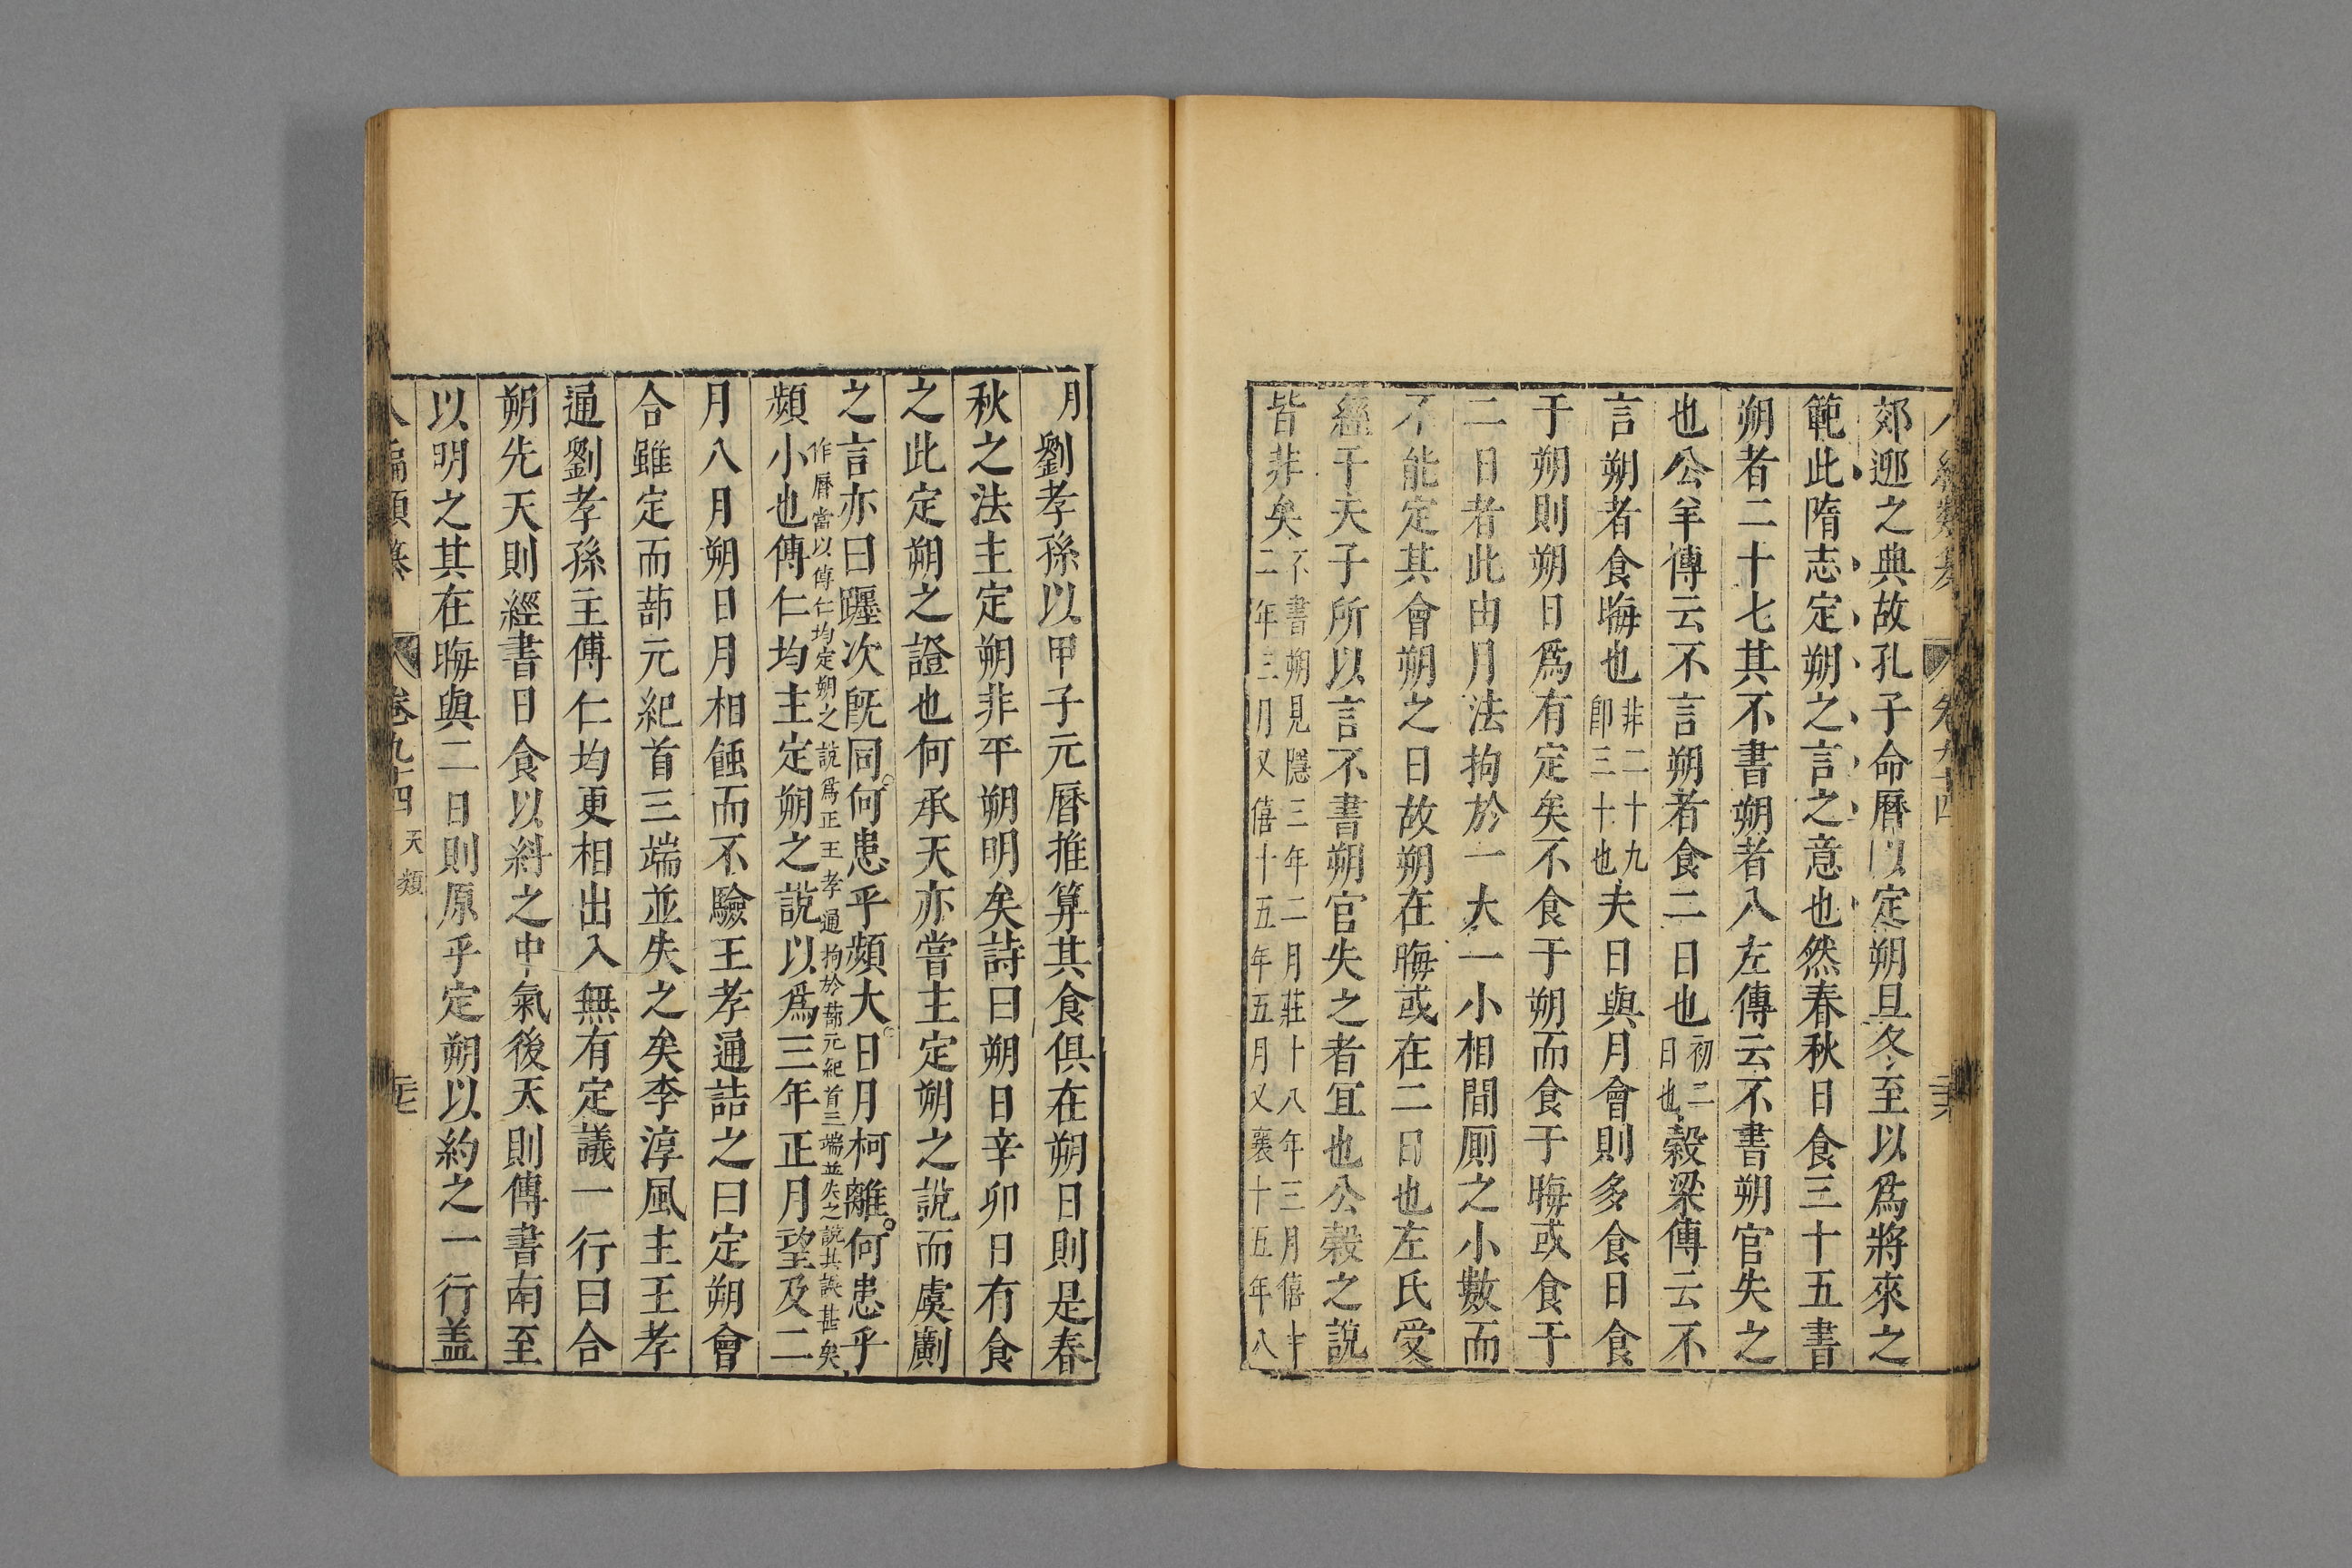 郊迎之典故孔子命曆以定朔旦冬至以爲將來之
範此隋志定朔之言之意也然春秋日食三十五書
朔者二十七其不書朔者八左傳云不書朔官失之
也公羊傳云不言朔者食二日也初二日也穀梁傳云不
言朔者食晦也非二十九卽三十也夫日與月會則多食日食
于朔則朔日爲有定矣不食于朔而食于晦或食于
二日者此由月法拘於一大一小相間厠之小數而
不能定其會朔之日故朔在晦或在二日也左氏受
經于夫子所以言不書朔官失之者宜也公穀之說
皆非矣不書朔見隱三年二月莊十八年三月僖十二年三月又僖十五年五月又襄十五年八
月劉孝孫以甲子元曆推算其食俱在朔日則是春
秋之法主定朔非平朔明矣詩曰朔日辛卯日有食
之此定朔之證也何承天亦嘗主定朔之說而虞𠠎
之言亦曰躔次旣同何患乎頻大日月柯離何患乎
作曆當以傅仁均定朔之說爲正王孝通拘於蔀元紀首三端並失之說其誤甚矣
頻小也傅仁均主定朔之說以爲三年正月望及二
月八月朔日月相蝕而不驗王孝通詰之曰定朔會
合雖定而蔀元紀首三端並失之矣李淳風主王孝
通劉孝孫主傅仁均更相出入無有定議一行曰合
朔先天則經書日食以糾之中氣後天則傳書南至
以明之其在晦與二日則原乎定朔以約之一行盖
八編類纂 卷九十四 天類